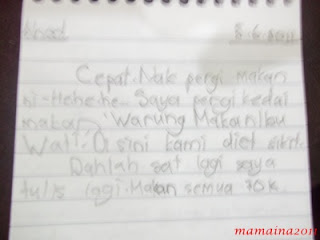 8.6.2011
Cepat. Nak pergi makan
ni-Hehehe. Saya pergi kedai
makan 'Warung Makan Ibu
Wati'. Di sini kami diet sikit.
Dahlah sat lagi saya
tulis lagi. Makan semua 70k.
mamaina2011